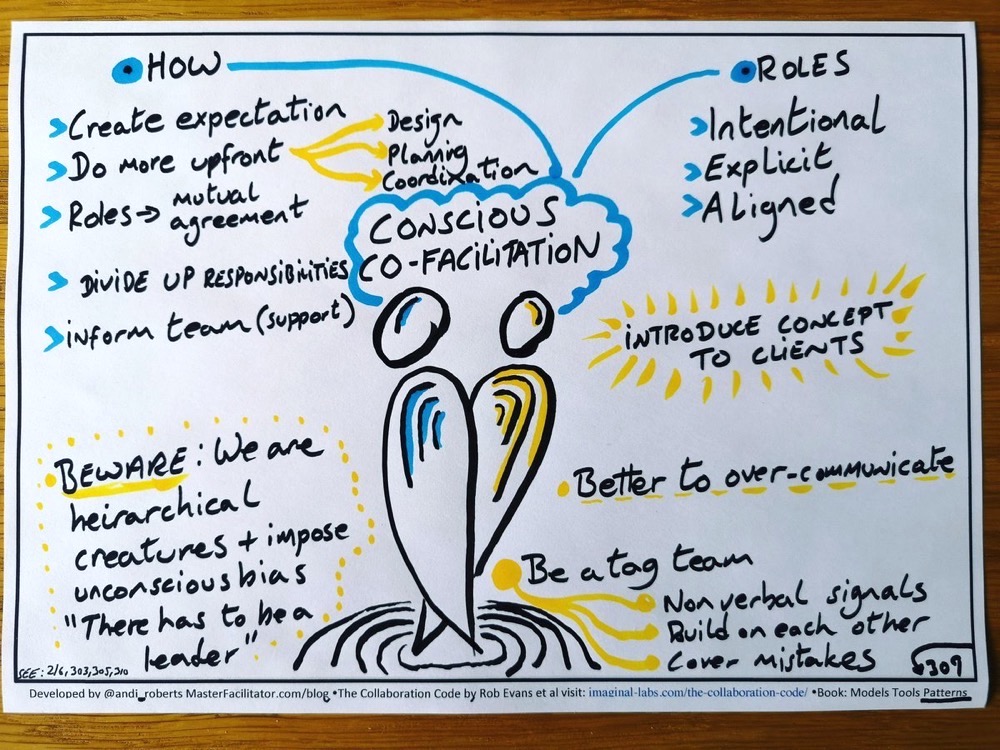 HOW
Create expectation
Do more upfront
Design
Planning
Coordination
Roles → mutual
agreement
DIVIDE UP RESPONSIBILITIES
inform team (support)
ROLES
Intentional
Explicit
Aligned
CONSCIOUS
CO-FACILITATION
INTRODUCE CONCEPT
TO CLIENTS
BEWARE: We are
heirarchical
creatures + impose
unconscious bias
"There has to be a
leader"
Better to over-communicate
Be a tag team
Non verbal signals
Build on each other
Cover mistakes
SEE: 216, 303, 305, 310
309
Developed by @andi_roberts MasterFacilitator.com/blog •The Collaboration Code by Rob Evans et al visit: imaginal-labs.com/the-collaboration-code/ •Book: Models Tools Patterns